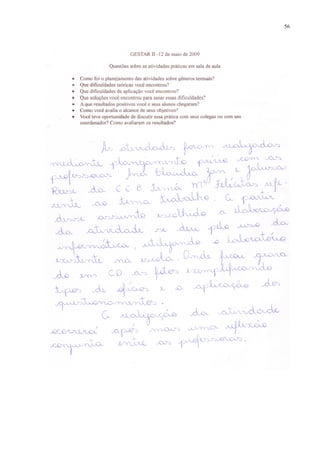 56
GESTAR II -12 de maio de 2009
Questões sobre as atividades práticas em sala de aula
• Como foi o planejamento das atividades sobre gêneros textuais?
• Que dificuldades teóricas você encontrou?
• Que dificuldades de aplicação você encontrou?
• Que soluções você encontrou para sanar essas dificuldades?
• A que resultados positivos você e seus alunos chegaram?
• Como você avalia o alcance de seus objetivos?
• Você teve oportunidade de discutir essa prática com seus colegas ou com seu
coordenador? Como avaliaram os resultados?
As atividades foram realizadas
mediante planejamento prévio com as
professoras Ana Claudia Zan e Jalusa
Rase da C E B. Irmã Mª Felicitas, refe-
rente ao tema trabalho. A partir
desse assunto escolhido a elaboração
da atividade se deu pelo uso da
informática, utilizando o laboratório
existente na escola. Onde ficou grava
do em CD as fotos exemplificando
tipos de ofícios e a aplicação dos
questionamentos.
A realização da atividade
ocorrerá após mais uma reflexão
conjunta entre as professoras.